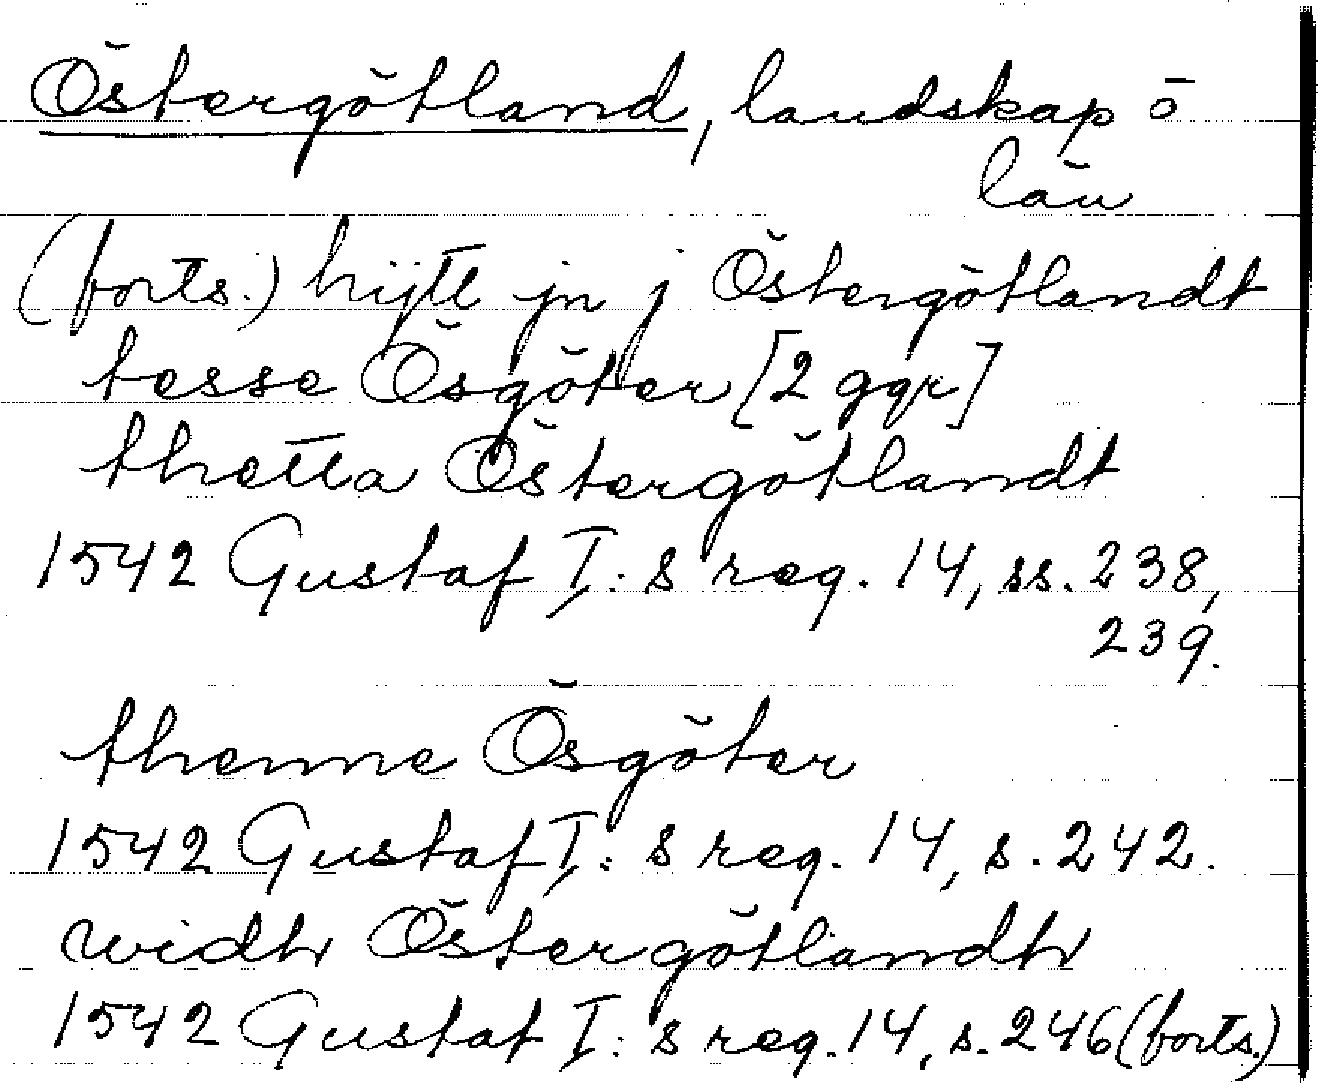 Östergötland, landskap o
län
(forts.) hijtt jn j Östergötlandt
tesse Ösgöter [2 ggr]
thetta Östergötlandt
1542 Gustaf I:s reg. 14, ss. 238,
239.
thenne Ösgöter
1542 Gustaf I:s reg. 14, s. 242.
widh Östergötlandh
1542 Gustaf I:s reg. 14, s. 246 (forts.)